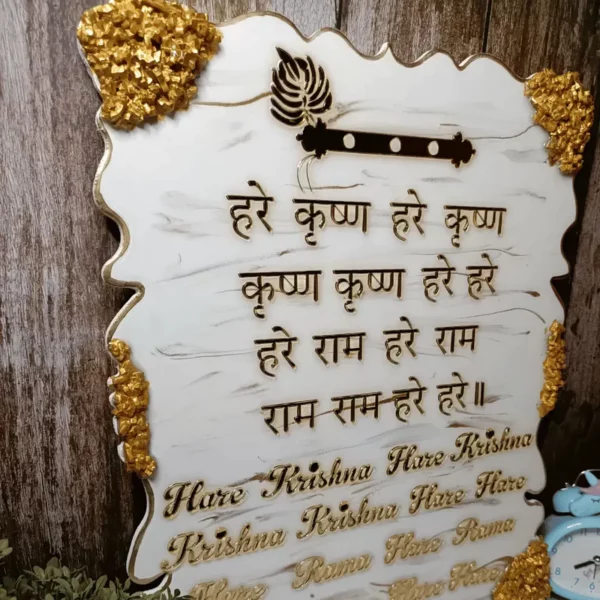 हरे कृष्ण हरे कृष्ण
कृष्ण कृष्ण हरे हरे
हरे राम हरे राम
राम सम हरे हरे॥
Hare Krishna Hare Krishna
Krishna Krishna Hare Hare
Hare Rama Hare Rama
Hare Hare